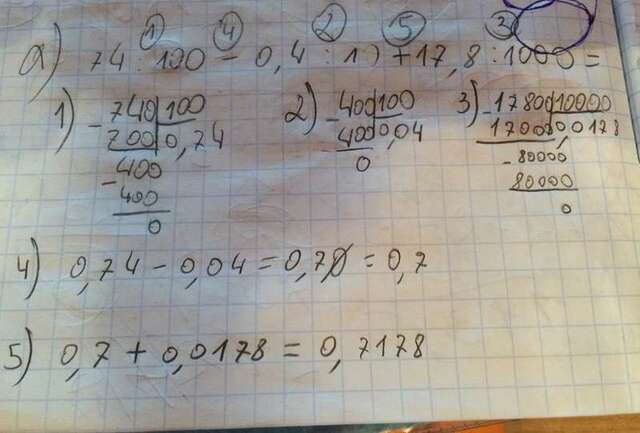 ① ④ ② ⑤ ③
а) 74 : 100 - 0,4 : 1) + 17,8 : 1000 =
1) - 740 | 100 2) - 400 | 100 3) - 1780 | 10000
700 | 0,74 400 | 0,04 17000 | 0,0178
- 400 0 - 80000
400 80000
0 0
4) 0,74 - 0,04 = 0,70 = 0,7
5) 0,7 + 0,0178 = 0,7178